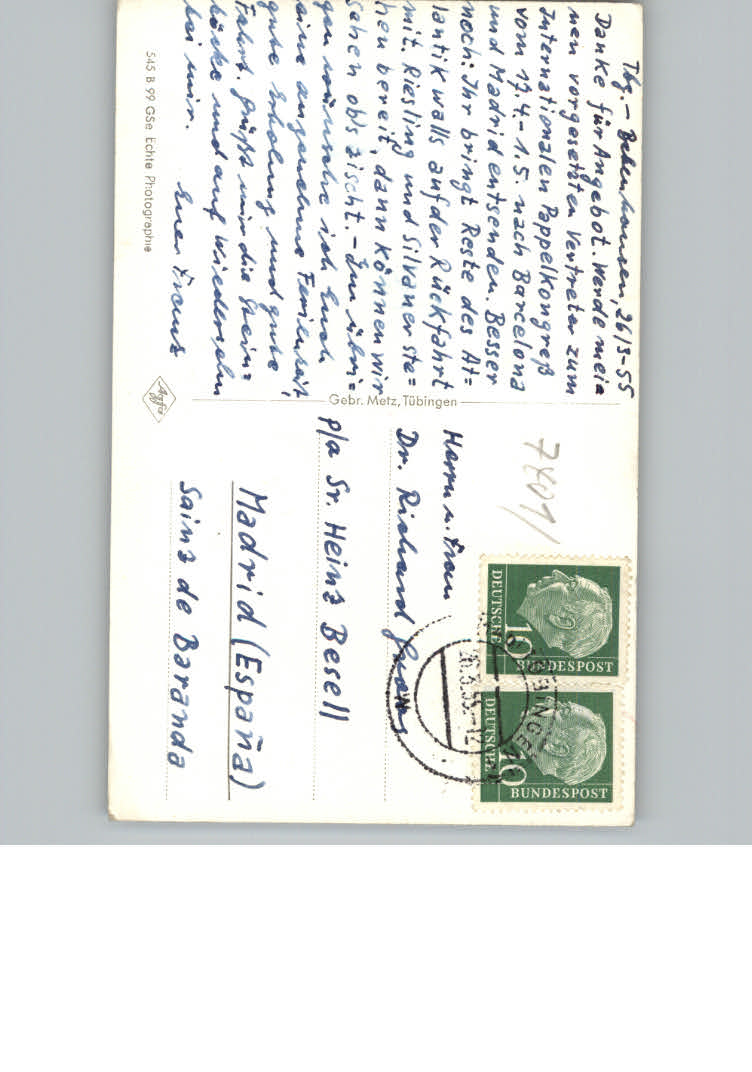 Tbg.-Bebenhausen, 26/3-55
Danke für Angebot. Werde meia
nen vorgesetzten Vertreter zum
Internationalen Pappelkongreß
vom 17.4.-1.5. nach Barcelona
und Madrid entsenden. Besser
noch: Ihr bringt Reste des At=
lantikwalls auf der Rückfahrt
mit. Riesling und Silvaner ste=
hen bereit, dann können wir
sehen ob's zischt. - Im übri=
gen wünsche ich Euch
eine angenehme Ferienzeit,
gute Erholung und gute
Fahrt. Grüßt mir die Stein=
böcke und auf Wiedersehn
bei mir.
Euer Franz
545 B 99 GSe Echte Photographie
Agfa
Gebr. Metz, Tübingen
7401/
Herrn u. Frau
Dr. Richard
p/a Sr. Heinz Besell
Madrid (España)
Sainz de Baranda
DEUTSCHE
10
BUNDESPOST
DEUTSCHE
10
BUNDESPOST
TÜBINGEN
26.3.55.-12